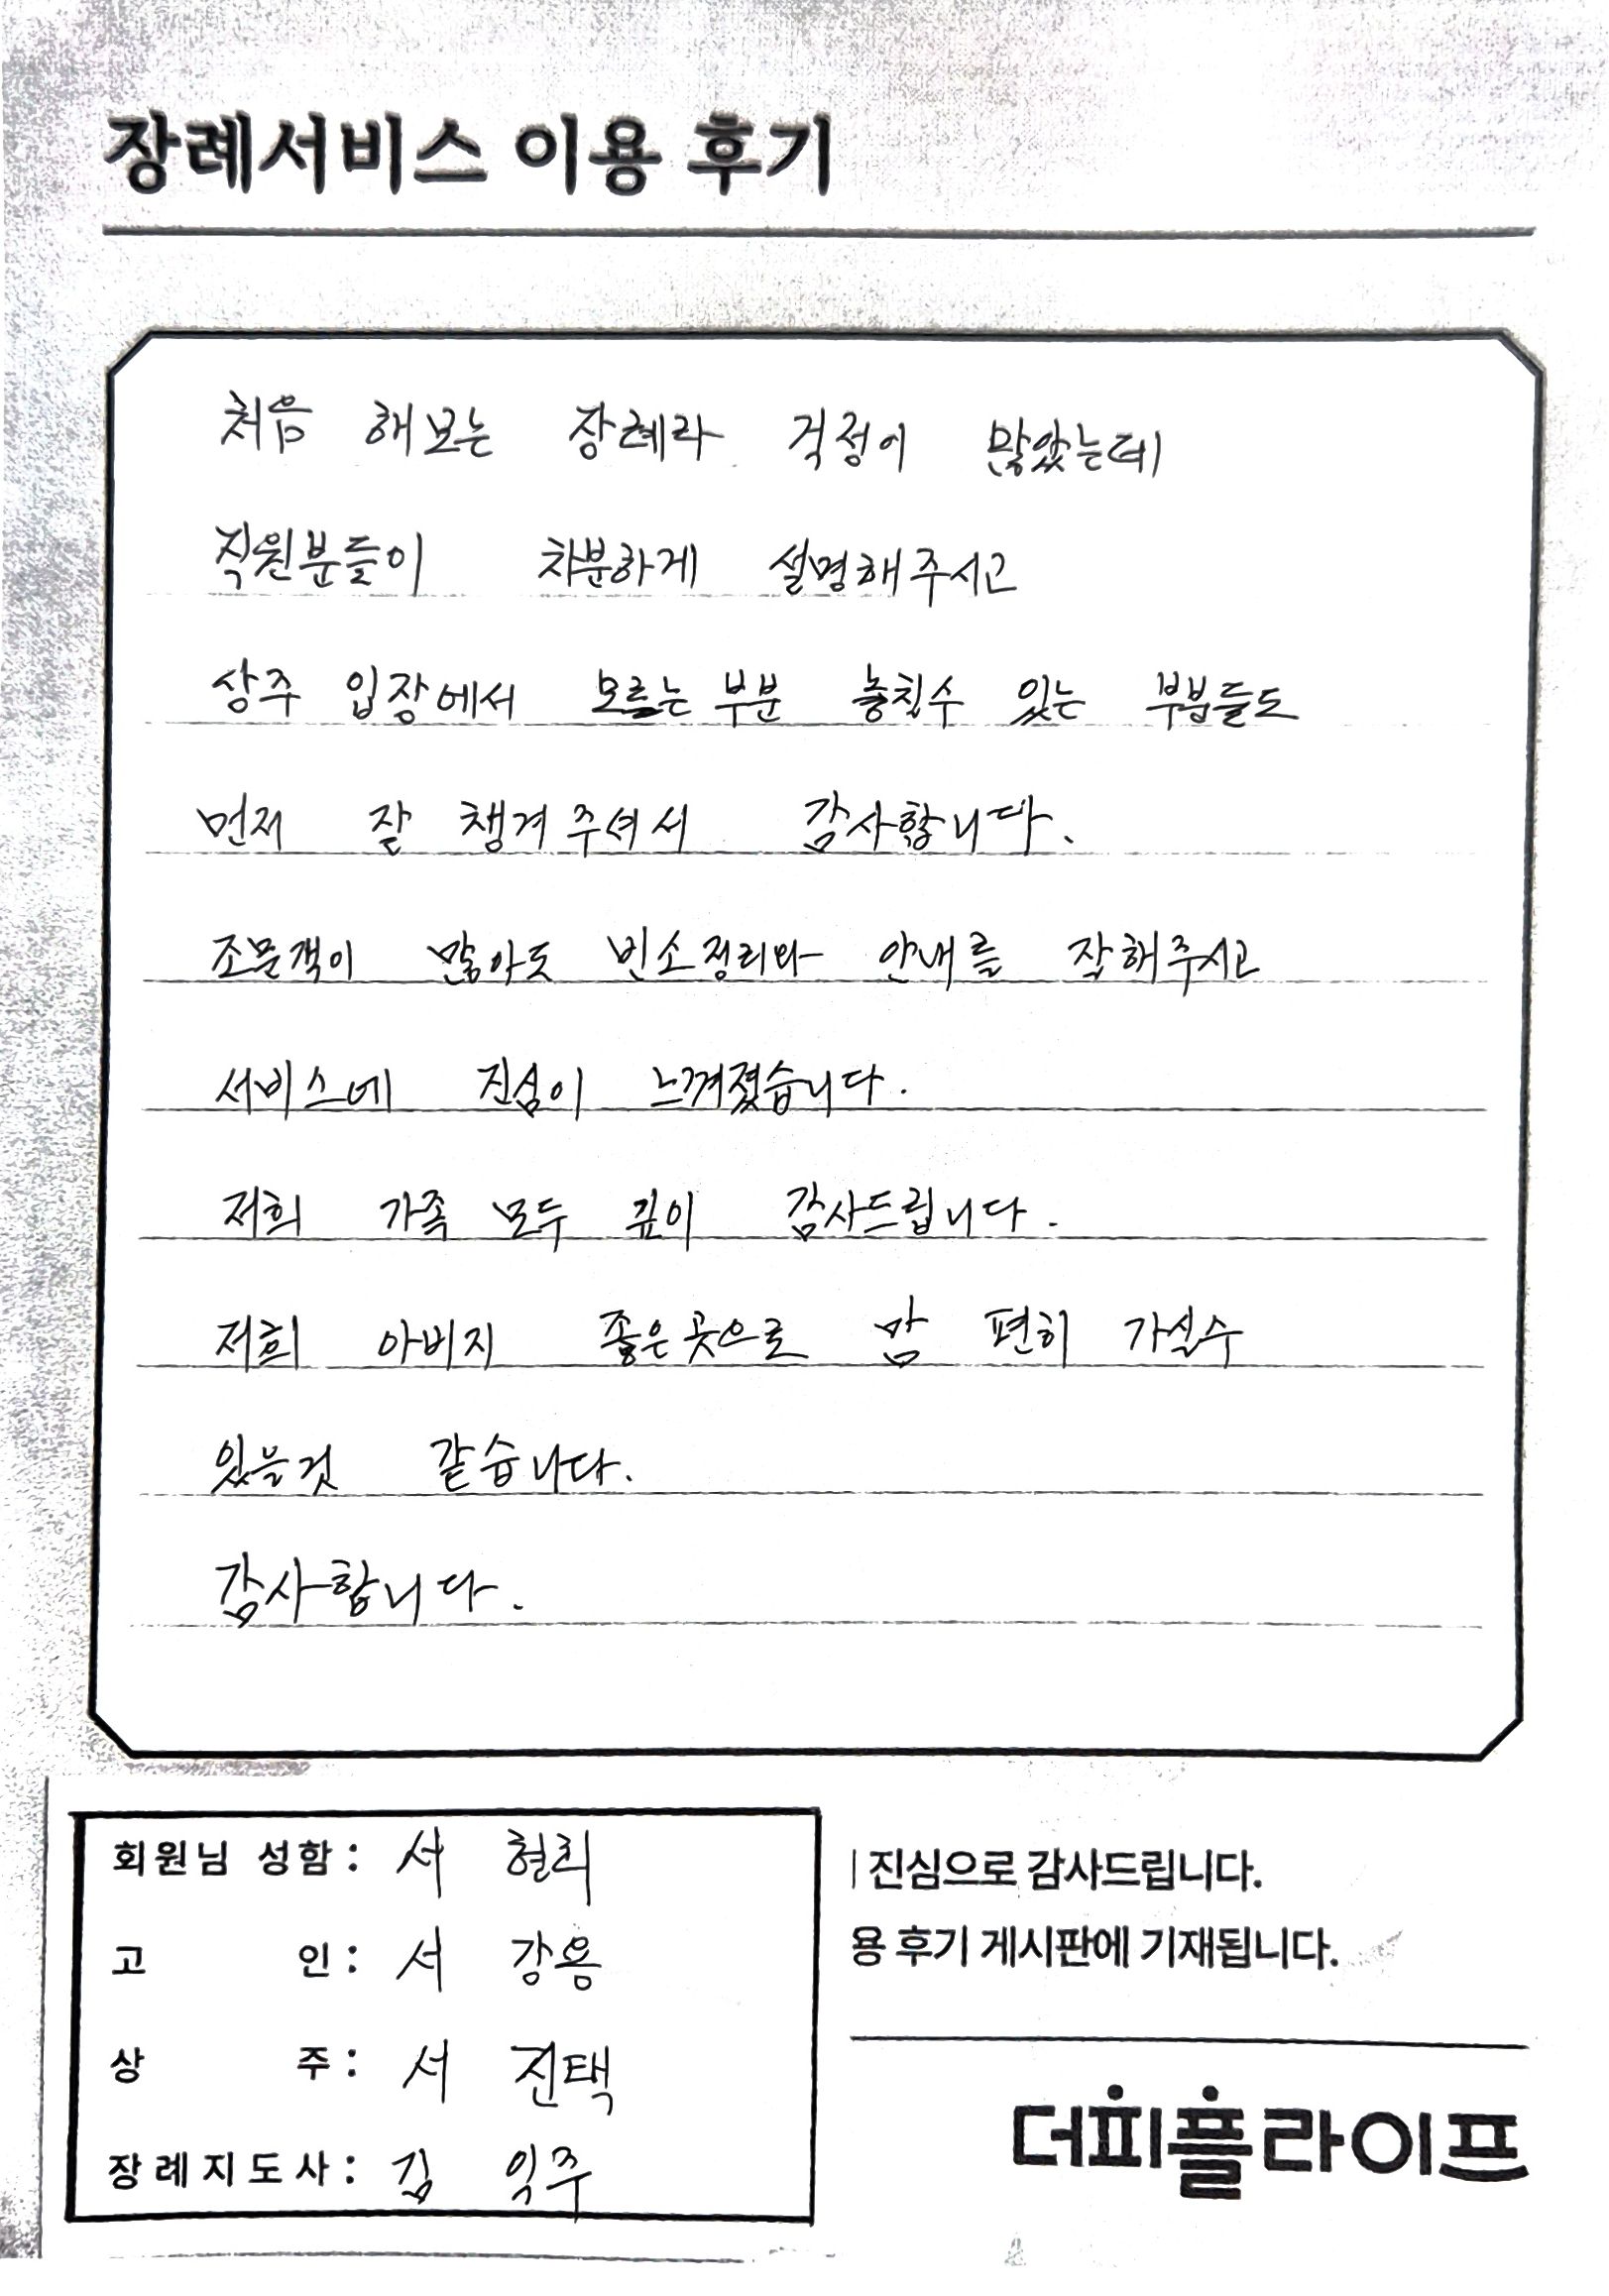 장례서비스 이용 후기
처음 해보는 장례라 걱정이 많았는데
직원분들이 차분하게 설명해주시고
상주 입장에서 모르는 부분 놓칠수 있는 부분들도
먼저 잘 챙겨주셔서 감사합니다.
조문객이 많아도 빈소정리와 안내를 잘해주시고
서비스에 진심이 느껴졌습니다.
저희 가족 모두 깊이 감사드립니다.
저희 아버지 좋은곳으로 맘 편히 가실수
있을것 같습니다.
감사합니다.
회원님 성함: 서 현희
고 인: 서 강용
상 주: 서 진택
장례지도사: 김 익주
진심으로 감사드립니다.
용 후기 게시판에 기재됩니다.
더피플라이프